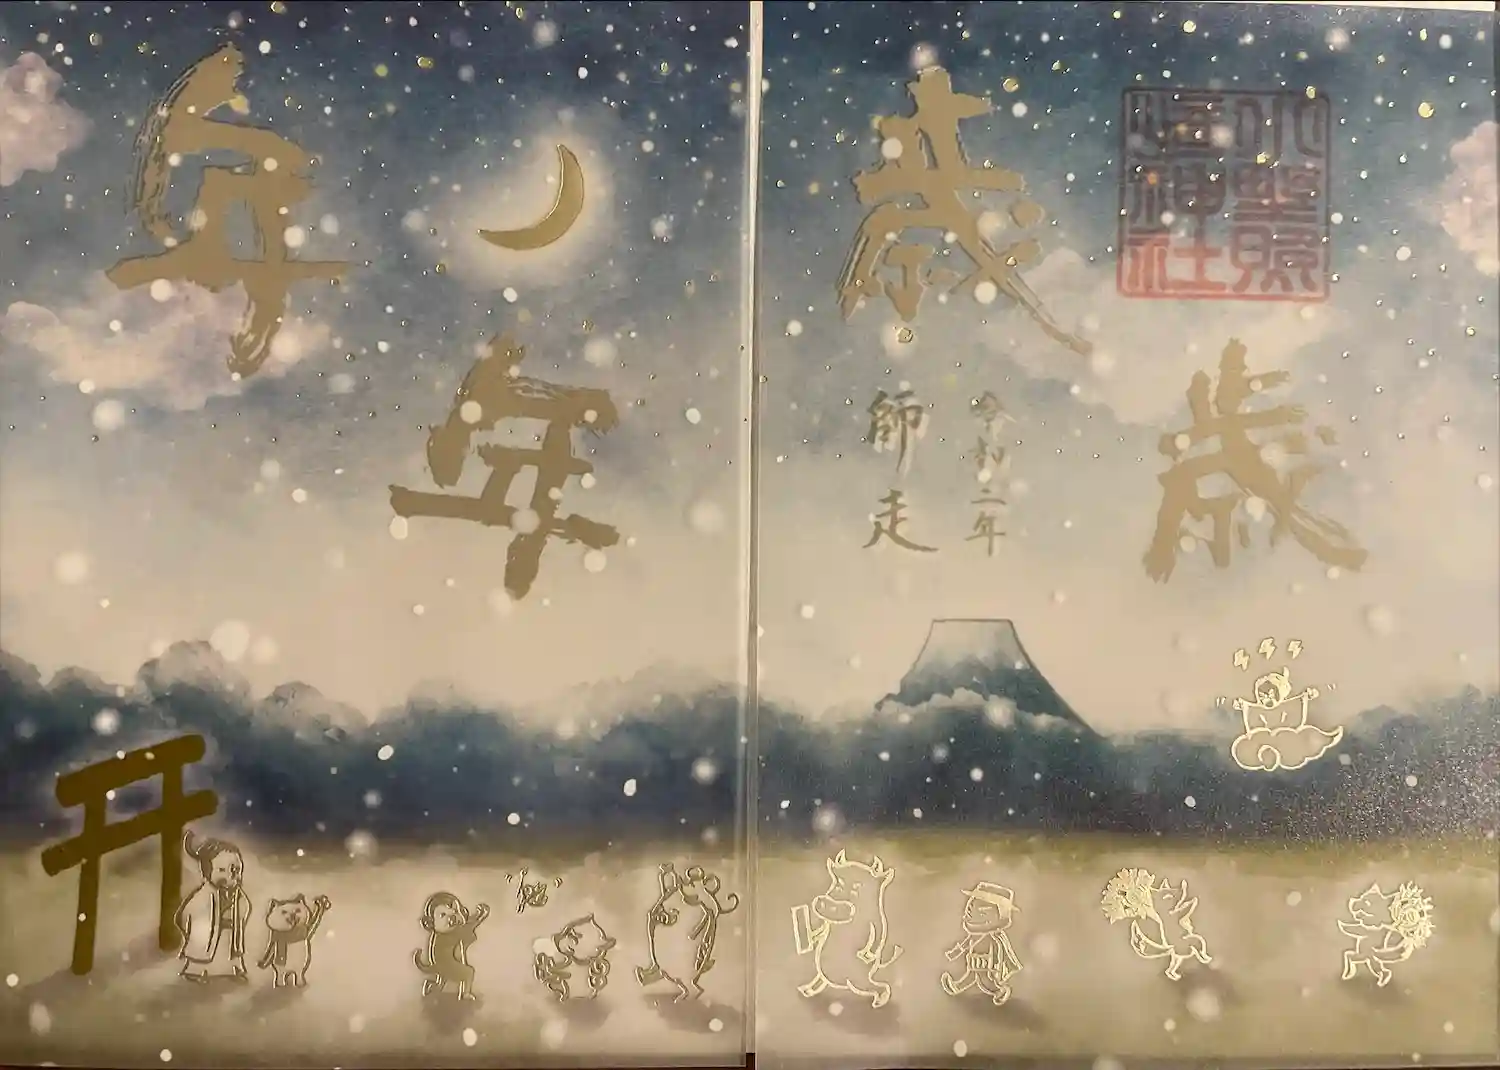 小埜照
崎神社
歳歳
令和二年
師走
年年